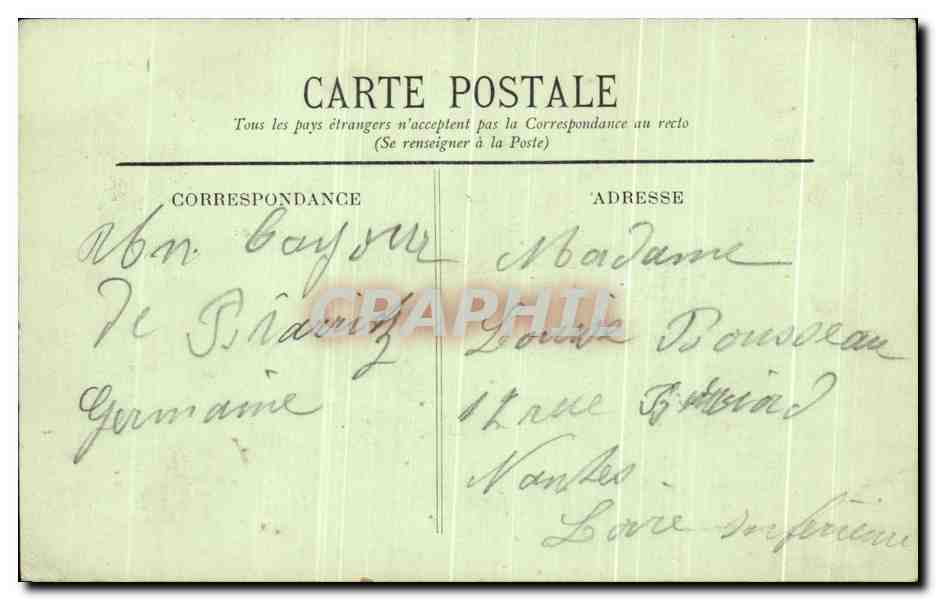 CARTE POSTALE
Tous les pays étrangers n'acceptent pas la Correspondance au recto
(Se renseigner à la Poste)
CORRESPONDANCE
Un
de Biarritz
Germaine
ADRESSE
Madame
Louise Bousseau
12 rue
Nantes.
Loire Inférieure
CRAPHIL